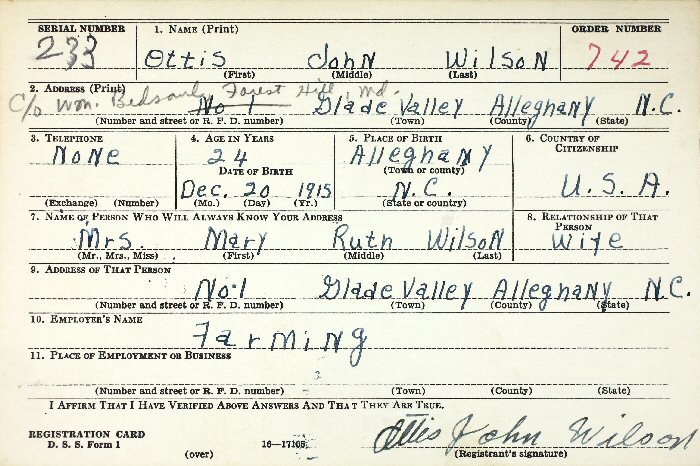 SERIAL NUMBER 1. NAME (Print) ORDER NUMBER
233 Ottis John Wilson 742
(First) (Middle) (Last)
2. ADDRESS (Print)
C/o Wm. Forest Hill, Md.
No 1 Glade Valley Alleghany N.C.
(Number and street or R. F. D. number) (Town) (County) (State)
3. TELEPHONE 4. AGE IN YEARS 5. PLACE OF BIRTH 6. COUNTRY OF CITIZENSHIP
None 24 Alleghany
DATE OF BIRTH (Town or county)
Dec. 20 1915 N.C. U.S.A.
(Exchange) (Number) (Mo.) (Day) (Yr.) (State or country)
7. NAME OF PERSON WHO WILL ALWAYS KNOW YOUR ADDRESS 8. RELATIONSHIP OF THAT PERSON
Mrs. Mary Ruth Wilson Wife
(Mr., Mrs., Miss) (First) (Middle) (Last)
9. ADDRESS OF THAT PERSON
No.1 Glade Valley Alleghany N.C.
(Number and street or R. F. D. number) (Town) (County) (State)
10. EMPLOYER'S NAME
Farming
11. PLACE OF EMPLOYMENT OR BUSINESS
(Number and street or R. F. D. number) (Town) (County) (State)
I AFFIRM THAT I HAVE VERIFIED ABOVE ANSWERS AND THAT THEY ARE TRUE.
REGISTRATION CARD
D. S. S. Form 1 (over) 16—17105 Ottis John Wilson
(Registrant's signature)